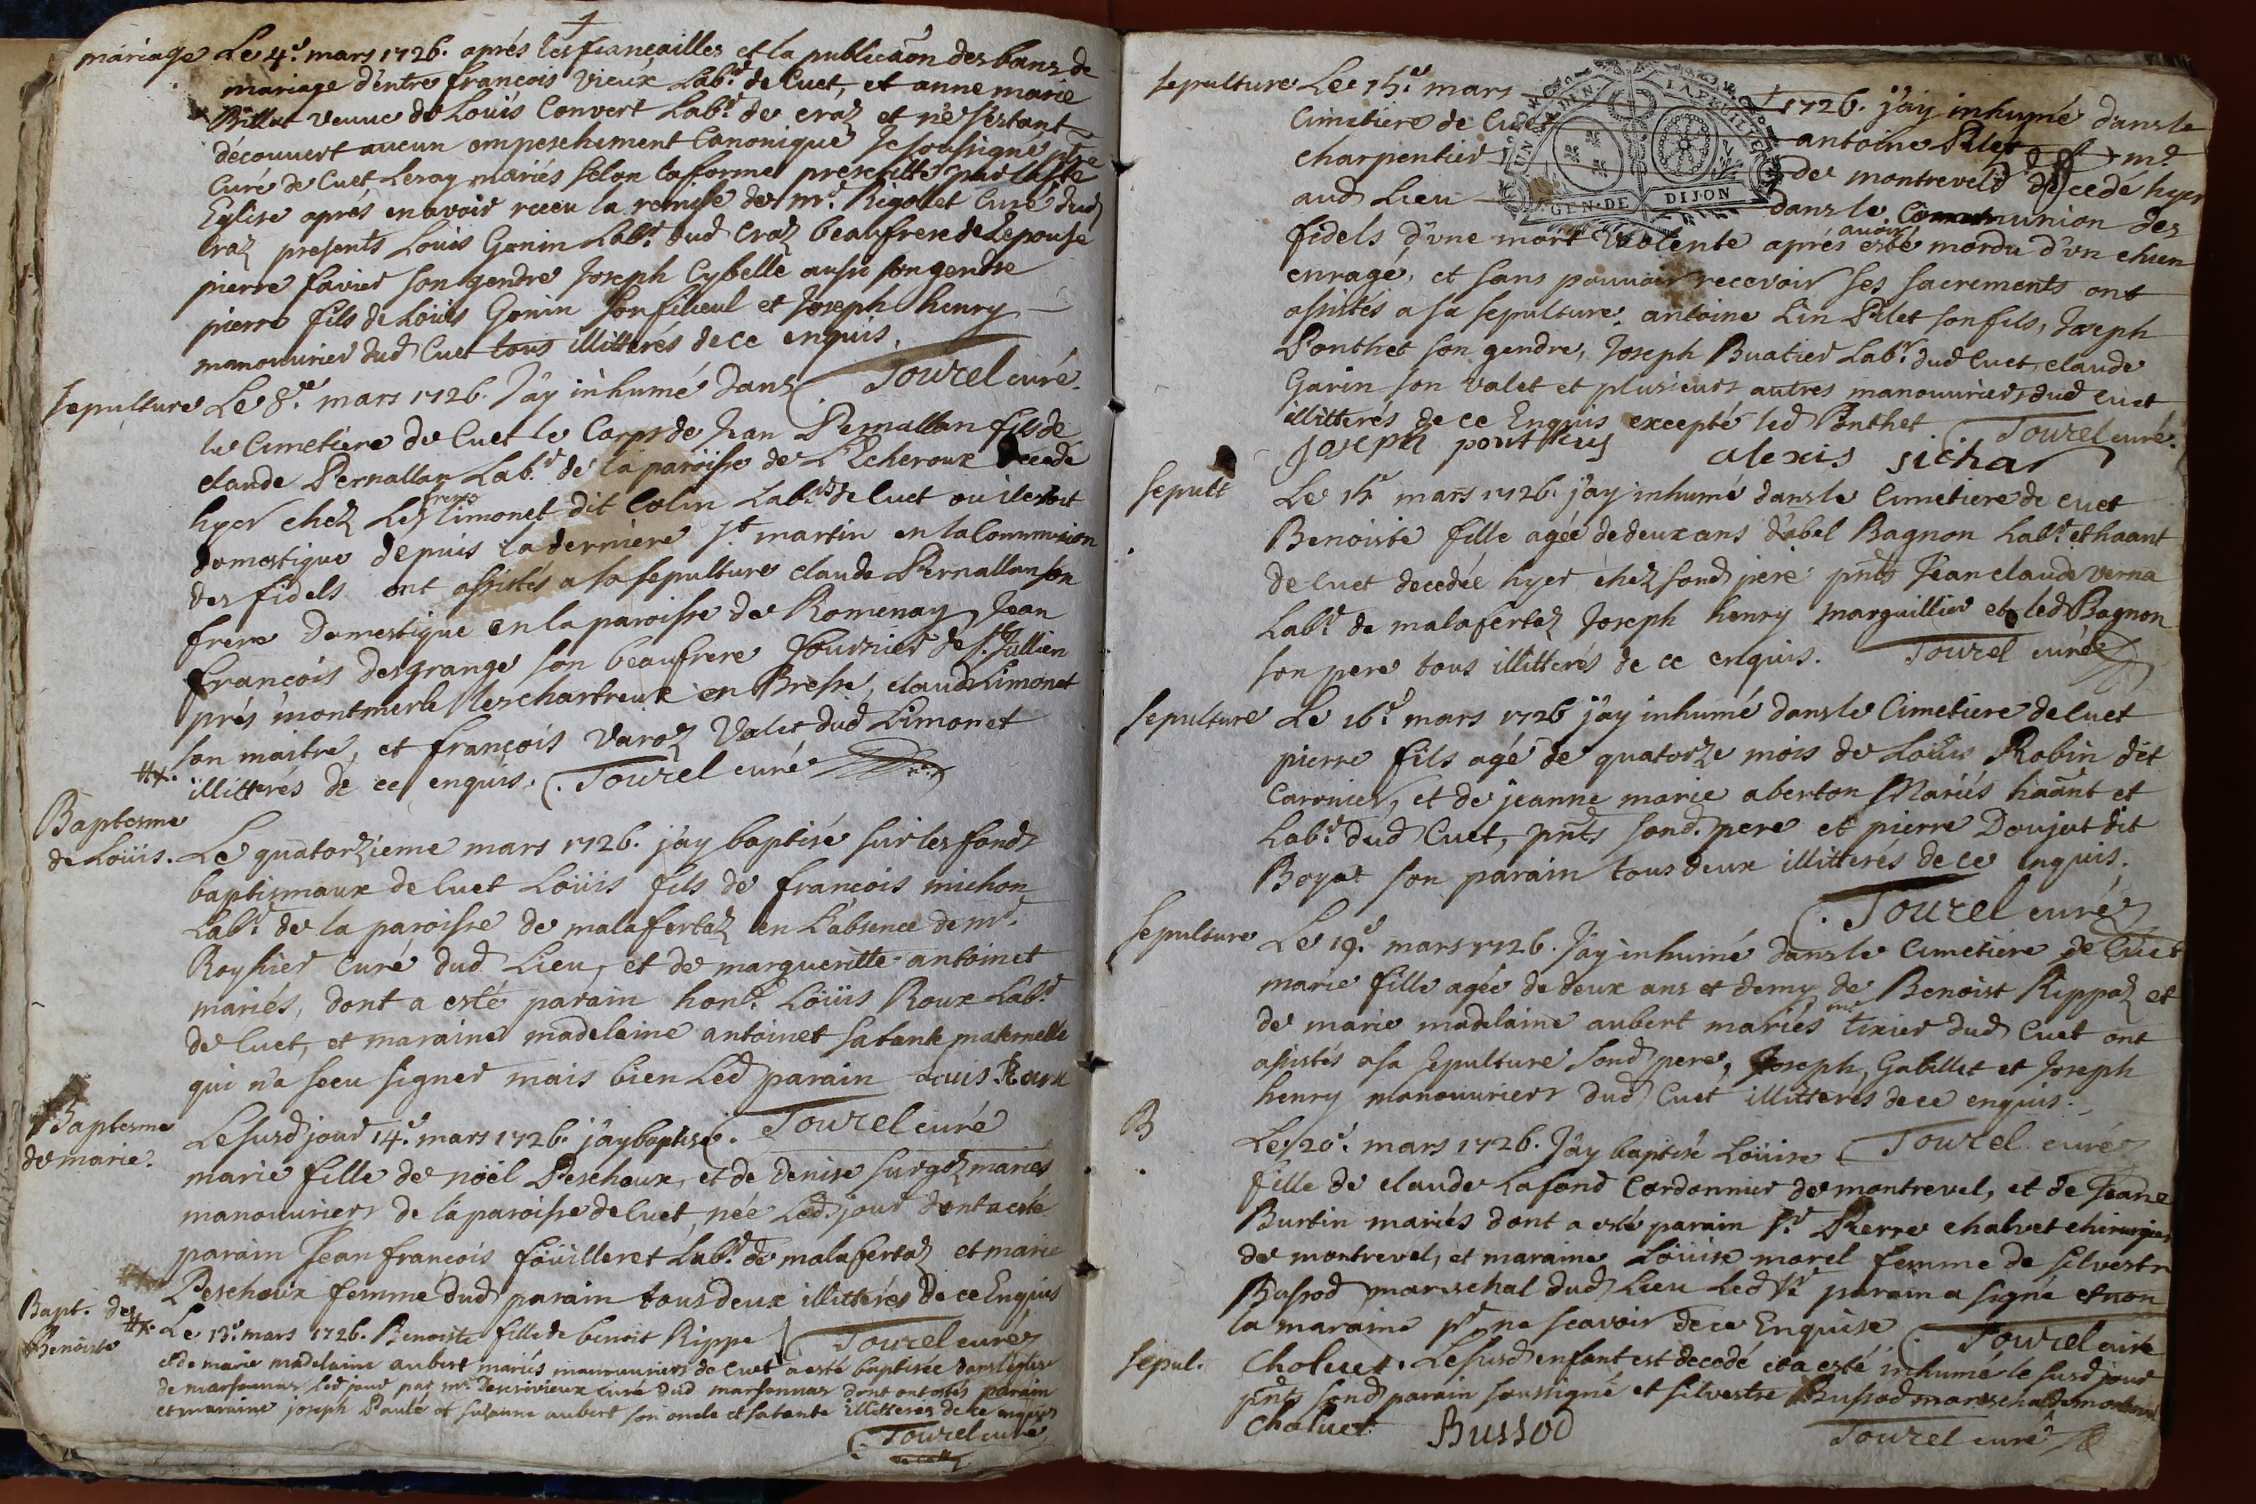 mariage Le 4e. mars 1726. aprés les fiançailles et la publicaõn des bans de
mariage d'entre françois Vieux Labr. de Cuet, et anne marie
Billat veuve de Loüis Convert Labr. de craz et ne s'estant
découvert aucun empeschement Canonique Je soussigné ptre
Curé de Cuet Les ay mariés selon la forme prescritte par la ste
Eglise aprés en avoir receu la remise de mr. Rigollet Curé dud
Craz presents Louis Gonin Labr. dud Craz beaufrere de Lepouse
pierre favier son gendre Joseph Cybelle aussi son gendre
pierre fils de Loüis Gonin son filieul et Joseph henry
manouvrier dud Cuet tous illitterés de ce enquis.
Tourel curé.
sepulture Le 8e. mars 1726. J'ay inhumé dans
le Cimetiere de Cuet le Corps de Jean Pernallan fils de
claude Pernallan Labr. de la paroisse de L'Echeroux decedé
hyer chez Les freres Limonet dit Colin Labrs de Cuet ou il estoit
domestique depuis la derniere st. martin en la Communion
des fidels ont assistés a sa sepulture claude Pernallan son
frere Domestique en la paroisse de Romenay, Jean
françois desgrange son beaufrere Journier de st. Jullien
prés montmerle les chartreux en Bresse, claude Limonet
son maitre, et françois Varoz Valet dud Limonet
illitterés de ce enquis. Tourel curé
Baptesme
de Loüis. Le quatorzieme mars 1726. j'ay baptisé sur les fonds
baptismaux de Cuet Loüis fils de françois michon
Labr. de la paroisse de malafertaz en L'absence de mr.
Royssier Curé dud Lieu, et de margueritte antoinet
mariés, dont a esté parain hont. Loüis Roux Labr.
de Cuet, et maraine madelaine antoinet sa tante maternelle
qui n'a sceu signer mais bien Led parain Louis Roux
Tourel curé
Baptesme
de marie. Le susd jour 14e. mars 1726. j'ay baptisé
marie fille de noël Peschoux, et de denise surgoz mariés
manouvriers de la paroisse de Cuet, née Led. jour dont a esté
parain Jean françois foüilleret Labr. de malafertaz et marie
Peschoux femme dud parain tous deux illitterés de ce Enquis
Tourel curé
Bapt. de
Benoiste Le 13e. mars 1726. Benoiste fille de benoit Rippe
et de marie madelaine aubert mariés manouvriers de Cuet a esté baptisée dans l'eglise
de marsonnas led jour par mr. curé dud marsonnas dont ont estés parain
et maraine joseph Paule et susanne aubert son oncle et sa tante illitterés de ce enquis
Tourel curé
sepulture Le 15e. mars 1726. j'ay inhumé dans le
Cimetiere de Cuet antoine Pilet md.
charpentier de montrevel decedé hyer
aud Lieu dans le Communion des
GEN. DE DIJON
fidels d'une mort violente aprés avoir esté mordu d'un chien
enragé, et sans pouvoir recevoir ses sacrements ont
assistés a sa sepulture antoine Lin Pilet son fils, Joseph
Ponthet son gendre, Joseph Buatier Labr. dud Cuet, claude
Garin son valet et plusieurs autres manouvriers dud Cuet
illitterés de ce Enquis excepté led Ponthet Tourel curé.
Joseph alexis sichar
sepult Le 15e. mars 1726. j'ay inhumé dans le Cimetiere de Cuet
Benoiste fille agée de deux ans d'abel Bagnon Labr. et haant
de Cuet decedée hyer chez sond pere pnts Jean claude Verna
Labr. de malafertaz Joseph henry marguillier et led Bagnon
son pere tous illitterés de ce enquis. Tourel curé
sepulture Le 16e. mars 1726 j'ay inhumé dans le Cimetiere de Cuet
pierre fils agé de quatorze mois de Loüis Robin dit
Carronier, et de jeanne marie aberton Mariés haant et
Labr. dud Cuet, pnts sond. pere et pierre Doujat dit
Boyat son parain tous deux illitterés de ce enquis.
Tourel curé
sepulture Le 19e. mars 1726. J'ay inhumé dans le Cimetiere de Cuet
marie fille agée de deux ans et demy de Benoist Rippaz et
de marie madelaine aubert mariés tixier dud Cuet ont
assistés a sa sepulture sond pere, Joseph Gabillet et Joseph
henry manouvriers dud Cuet illitterés de ce enquis.
Tourel curé
B Le 20e. mars 1726. J'ay baptisé Loüise
fille de claude Lafond Cordonnier de montrevel, et de Jeane
Burtin mariés dont a esté parain sr. Pierre chalvet chirurgien
de montrevel, et maraine Loüise morel femme de silvestre
Bussod mareschal dud Lieu Led sr. parain a signé et non
la maraine pr. ne scavoir de ce Enquise
Tourel curé
Chaluet.
sepul. Le susd enfant est decedé et a esté inhumé le susd jour
pnts sond parain soussigné et silvestre Bussod mareschal de montrevel
Chaluet Bussod Tourel curé